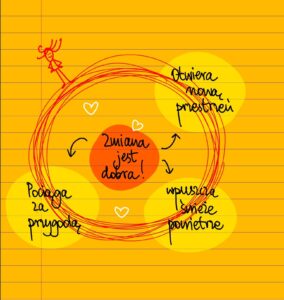 Otwiera
nową
przestrzeń
Zmiana
jest
dobra!
Podąga
za
przygodą
wpuszcza
świeże
powietrze